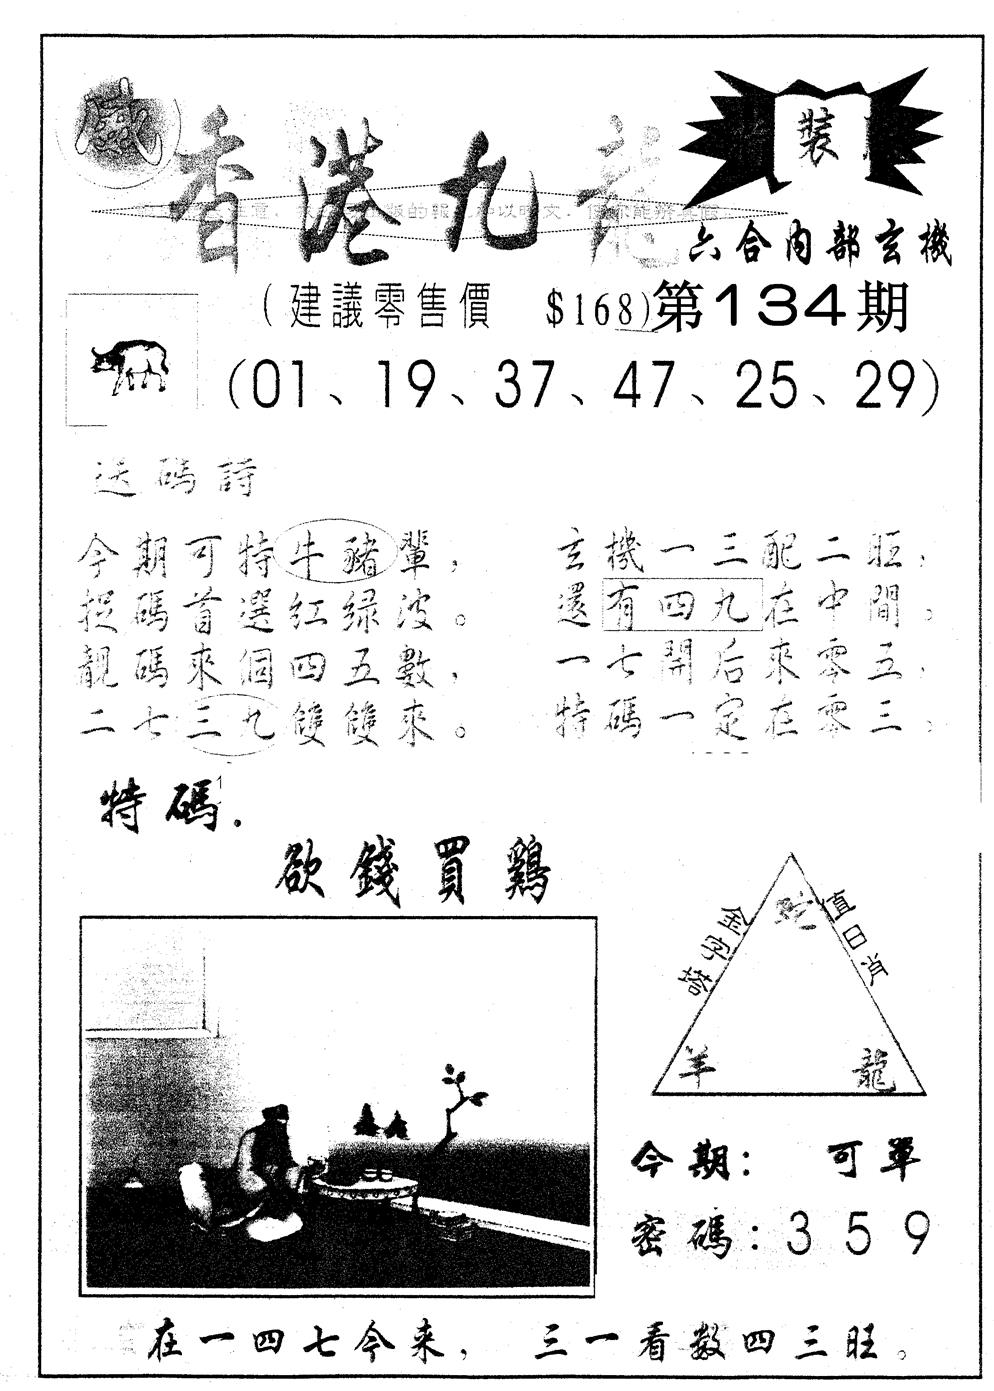 裝
香港九龍
六合內部玄機
(建議零售價 $168)第134期
(01、19、37、47、25、29)
送碼詩
今期可特牛豬輩，
捉碼首選紅绿波。
靚碼來個四五數，
二七三九雙雙來。
玄機一三配二旺，
還有四九在中間。
一七開后來零五，
特碼一定在零三。
特碼.
欲錢買鷄
金字塔
值日肖
蛇
羊 龍
今期: 可單
密碼:359
在一四七今来， 三一看数四三旺。